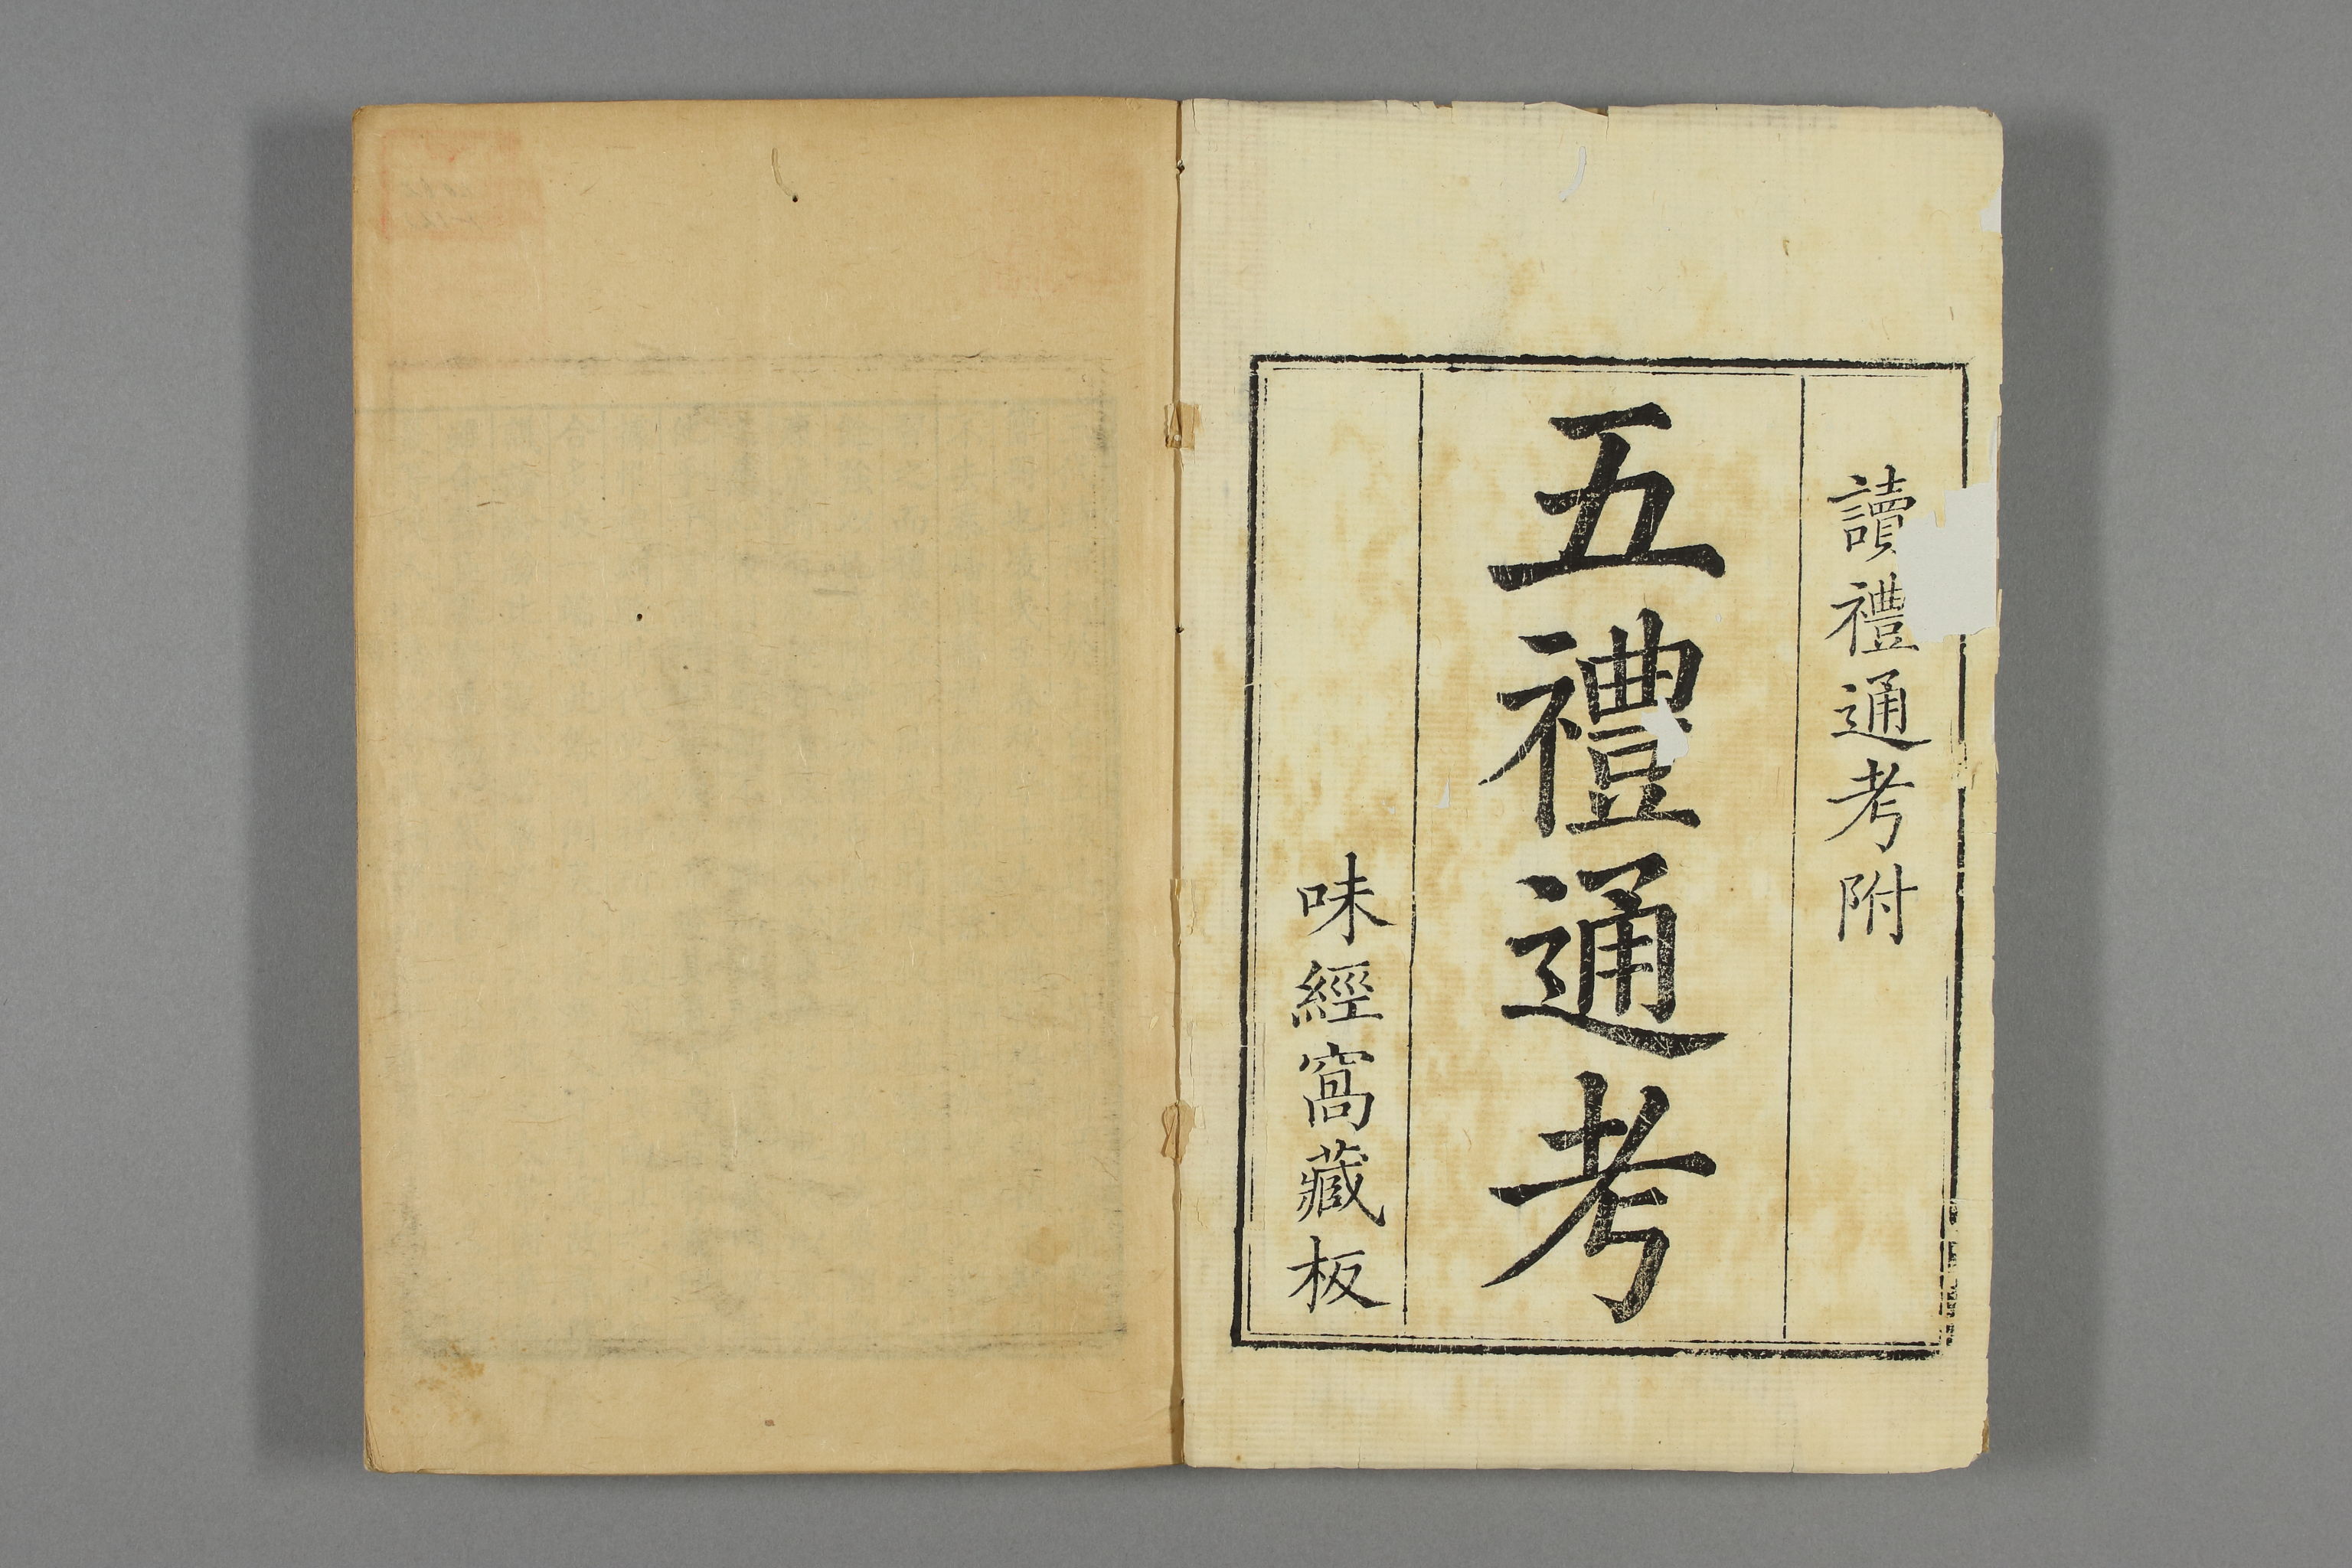 讀禮通考附
五禮通考
味經窩藏板